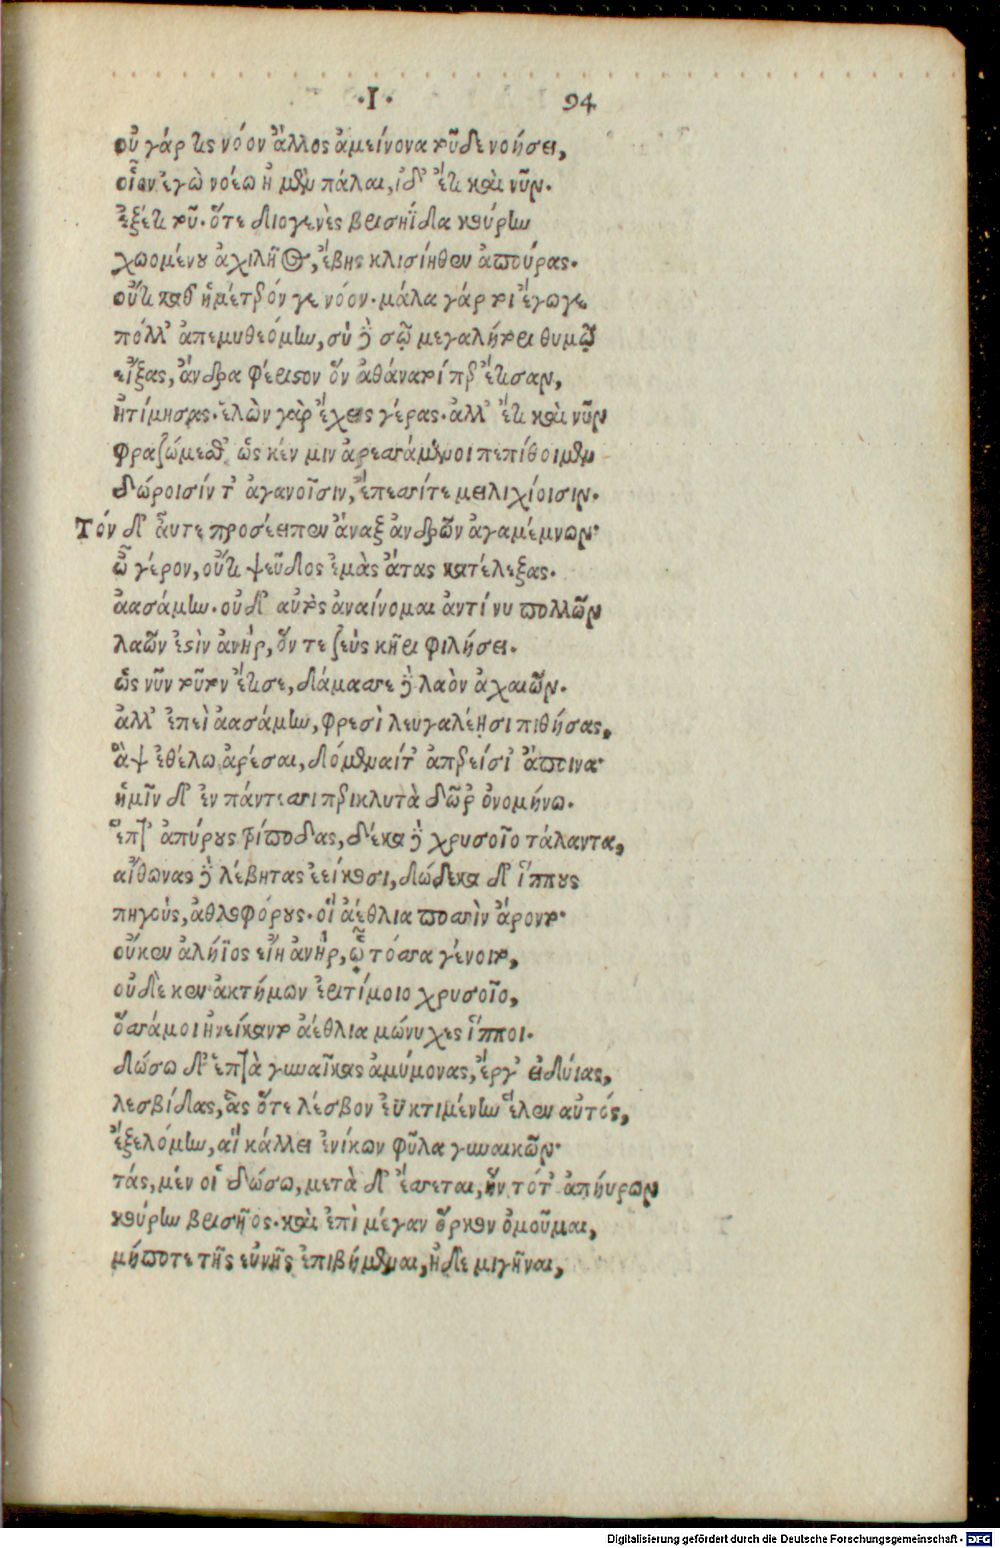 ·Ι· 94
οὐ γάρ τις νόον ἄλλος ἀμείνονα τοῦδε νοήσει,
οἷον ἐγὼ νοέω ἠ μὲν πάλαι, ἰδ' ἔτι καὶ νῦν.
ἐξέτι τοῦ. ὅτε διογενὲς βρισηΐδα κούρην
χωομένου ἀχιλῆος, ἔβης κλισίηθεν ἀπούρας.
οὔτι καθ' ἡμέτερόν γε νόον. μάλα γάρ τοι ἔγωγε
πόλλ' ἀπεμυθεόμην, σὺ δὲ σῷ μεγαλήτορι θυμῷ
εἴξας, ἄνδρα φέριστον ὃν ἀθάνατοί περ ἔτισαν,
ἠτίμησας. ἑλὼν γὰρ ἔχεις γέρας. ἀλλ' ἔτι καὶ νῦν
φραζώμεσθ' ὥς κέν μιν ἀρεσσάμενοι πεπίθοιμεν
δώροισίν τ' ἀγανοῖσιν, ἔπεσσί τε μειλιχίοισιν.
Τόν δ' αὖτε προσέειπεν ἄναξ ἀνδρῶν ἀγαμέμνων·
ὦ γέρον, οὔτι ψεῦδος ἐμὰς ἄτας κατέλεξας.
ἀασάμην. οὐδ' αὐτὸς ἀναίνομαι ἀντί νυ πολλῶν
λαῶν ἐστὶν ἀνὴρ, ὅν τε ζεὺς κῆρι φιλήσει.
ὡς νῦν τοῦτον ἔτισε, δάμασσε δὲ λαὸν ἀχαιῶν.
ἀλλ' ἐπεὶ ἀασάμην, φρεσὶ λευγαλέῃσι πιθήσας,
ἂψ ἐθέλω ἀρέσαι, δόμεναί τ' ἀπερείσι' ἄποινα·
ἡμῖν δ' ἐν πάντεσσι περικλυτὰ δῶρ' ὀνομήνω.
ἕπτ' ἀπύρους τρίποδας, δέκα δὲ χρυσοῖο τάλαντα,
αἴθωνας δὲ λέβητας ἐείκοσι, δώδεκα δ' ἵππους
πηγοὺς, ἀθλοφόρους. οἳ ἀέθλια ποσσὶν ἄροντο·
οὔκεν ἀλήϊος εἴη ἀνὴρ, ᾧ τόσσα γένοιτο,
οὐδὲ κεν ἀκτήμων ἐριτίμοιο χρυσοῖο,
ὅσσά μοι ἠνείκαντο ἀέθλια μώνυχες ἵπποι.
δώσω δ' ἑπτὰ γυναῖκας ἀμύμονας, ἔργ' εἰδυίας,
λεσβίδας, ἃς ὅτε λέσβον ἐϋκτιμένην ἕλεν αὐτός,
ἐξελόμην, αἳ κάλλει ἐνίκων φῦλα γυναικῶν·
τάς, μέν οἱ δώσω, μετὰ δ' ἔσσεται, ἣν τότ' ἀπηύρων
κούρην βρισῆος. καὶ ἐπὶ μέγαν ὅρκον ὀμοῦμαι,
μήποτε τῆς εὐνῆς ἐπιβήμεναι, ἠδὲ μιγῆναι,
Digitalisierung gefördert durch die Deutsche Forschungsgemeinschaft - DFG